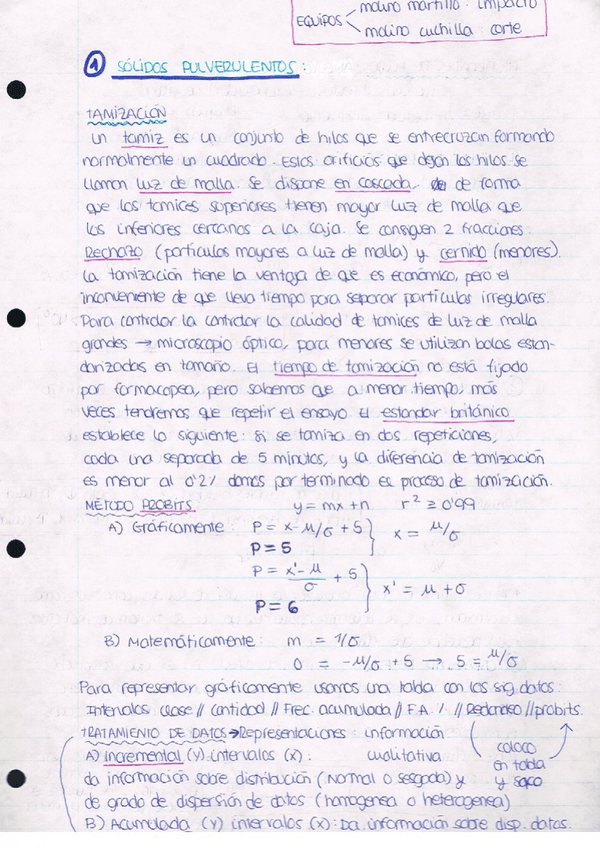 molino martillo: impacto
EQUIPOS
molino cuchilla: corte
1 SÓLIDOS PULVERULENTOS:
TAMIZACIÓN
Un tamiz es un conjunto de hilos que se entrecruzan formando
normalmente un cuadrado. Estos orificios que dejan los hilos se
llaman luz de malla. Se dispone en cascada, de forma
que los tamices superiores tienen mayor luz de malla que
los inferiores cercanos a la caja. Se consiguen 2 fracciones:
Rechazo (partículas mayores a luz de malla) y cernido (menores).
La tamización tiene la ventaja de que es económico, pero el
inconveniente de que lleva tiempo para separar partículas irregulares.
Para controlar la controlar la calidad de tamices de luz de malla
grandes → microscopio óptico, para menores se utilizan bolas estan-
darizadas en tamaño. El tiempo de tamización no está fijado
por farmacopea, pero sabemos que a menor tiempo, más
veces tendremos que repetir el ensayo. El estandar británico
establece lo siguiente: si se tamiza en dos repeticiones,
cada una separada de 5 minutos, y la diferencia de tamización
es menor al 0'2% damos por terminado es proceso de tamización.
MÉTODO PROBITS. y = mx+n r² ≥ 0'99
A) Gráficamente: P = x-μ/σ + 5 } x = μ/σ
P = 5
P = x'-μ/σ + 5 } x' = μ + σ
P = 6
B) Matemáticamente: m = 1/σ
0 = -μ/σ + 5 → 5 = μ/σ
Para representar gráficamente usamos una tabla con los sig. datos:
Intervalos clase // cantidad // Frec. acumulada // F.A. % // Redondeo // probits.
TRATAMIENTO DE DATOS → Representaciones: información
A) Incremental (y) intervalos (x): cualitativa
da información sobre distribución (normal o sesgada) y
de grado de dispersión de datos (homogenea o heterogenea)
coloco
en tabla
y saco
B) Acumulada (y) intervalos (x): Da información sobre disp. datos.